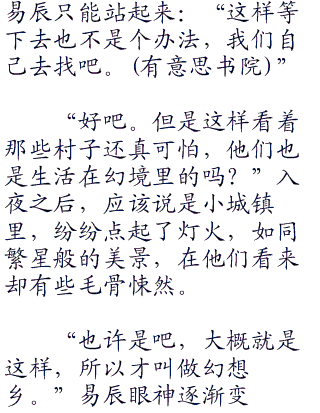 易辰只能站起来：“这样等
下去也不是个办法，我们自
己去找吧。(有意思书院)”
“好吧。但是这样看着
那些村子还真可怕，他们也
是生活在幻境里的吗？”入
夜之后，应该说是小城镇
里，纷纷点起了灯火，如同
繁星般的美景，在他们看来
却有些毛骨悚然。
“也许是吧，大概就是
这样，所以才叫做幻想
乡。”易辰眼神逐渐变